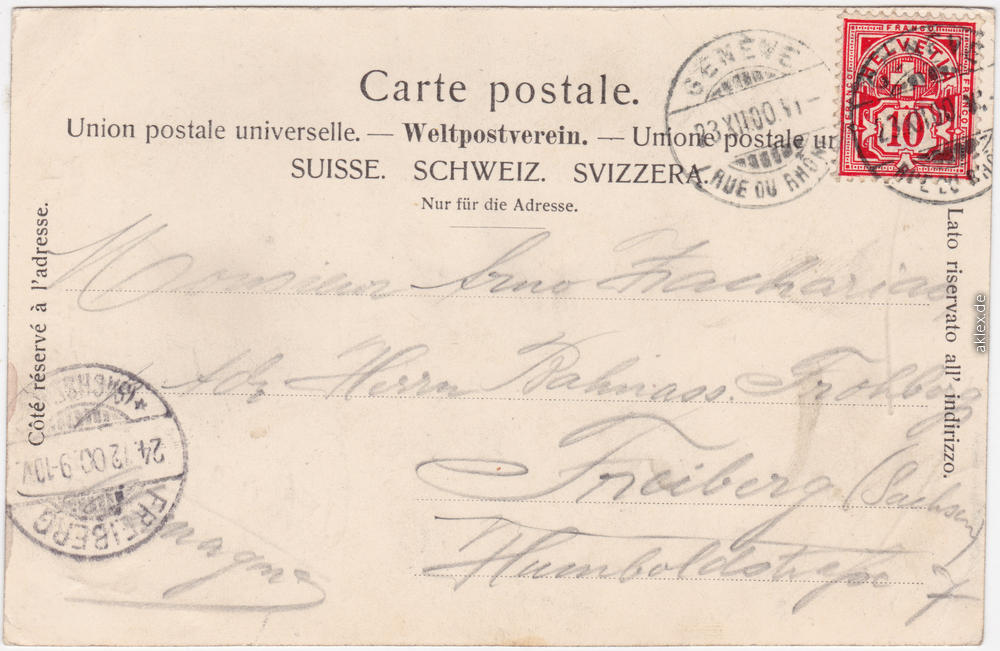 Carte postale.
Union postale universelle. — Weltpostverein. — Unione postale un
SUISSE. SCHWEIZ. SVIZZERA.
Nur für die Adresse.
Côté réservé à l'adresse.
Lato riservato all' indirizzo.
GENÈVE
XII 00
RUE DU RHÔNE
FRANCO
HELVETIA
FRANCO
FRANCO
10
Monsieur Arno Zacharias
Adr. Herrn Bahnass. Frohberg
Freiberg (Sachsen)
Humboldtstraße 7
(SACHSEN)
24.12.00.9-10V.
FREIBERG
akleх.de